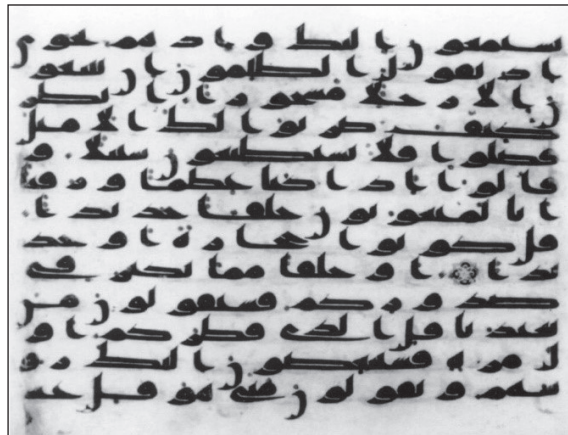 ستمعون اليك واذ هم نجوى
اذ يقول الظلمون ان تتبعو
ن الا رجلا مسحورا انظر
كيف ضربوا لك الامثل
فضلوا فلا يستطيعون سبيلا و
قالوا اذا كنا عظما ورفتا
انا لمبعوثون خلقا جديدا
قل كونوا حجارة او حد
يدا او خلقا مما يكبر في
صدوركم فسيقولون من
يعيدنا قل الذي فطركم او
ل مرة فسينغضون اليك رو
سهم ويقولون متى هو قل عسى